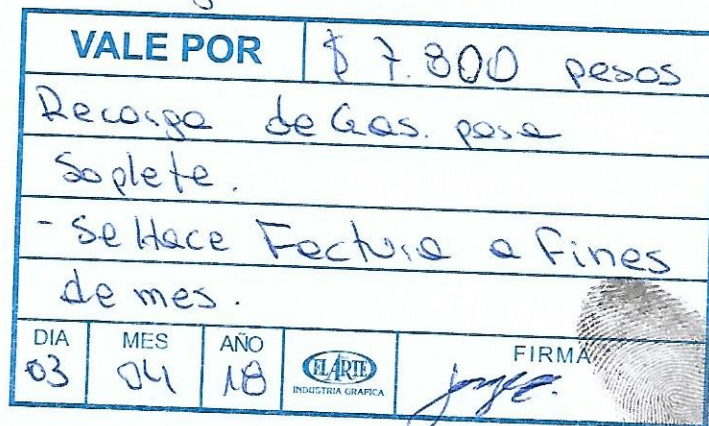 VALE POR $ 7.800 pesos
Recarga de Gas. para
Soplete.
- Se Hace Factura a Fines
de mes.
DIA MES AÑO FIRMA
03 04 18
ELARTE
INDUSTRIA GRAFICA
Jorge.